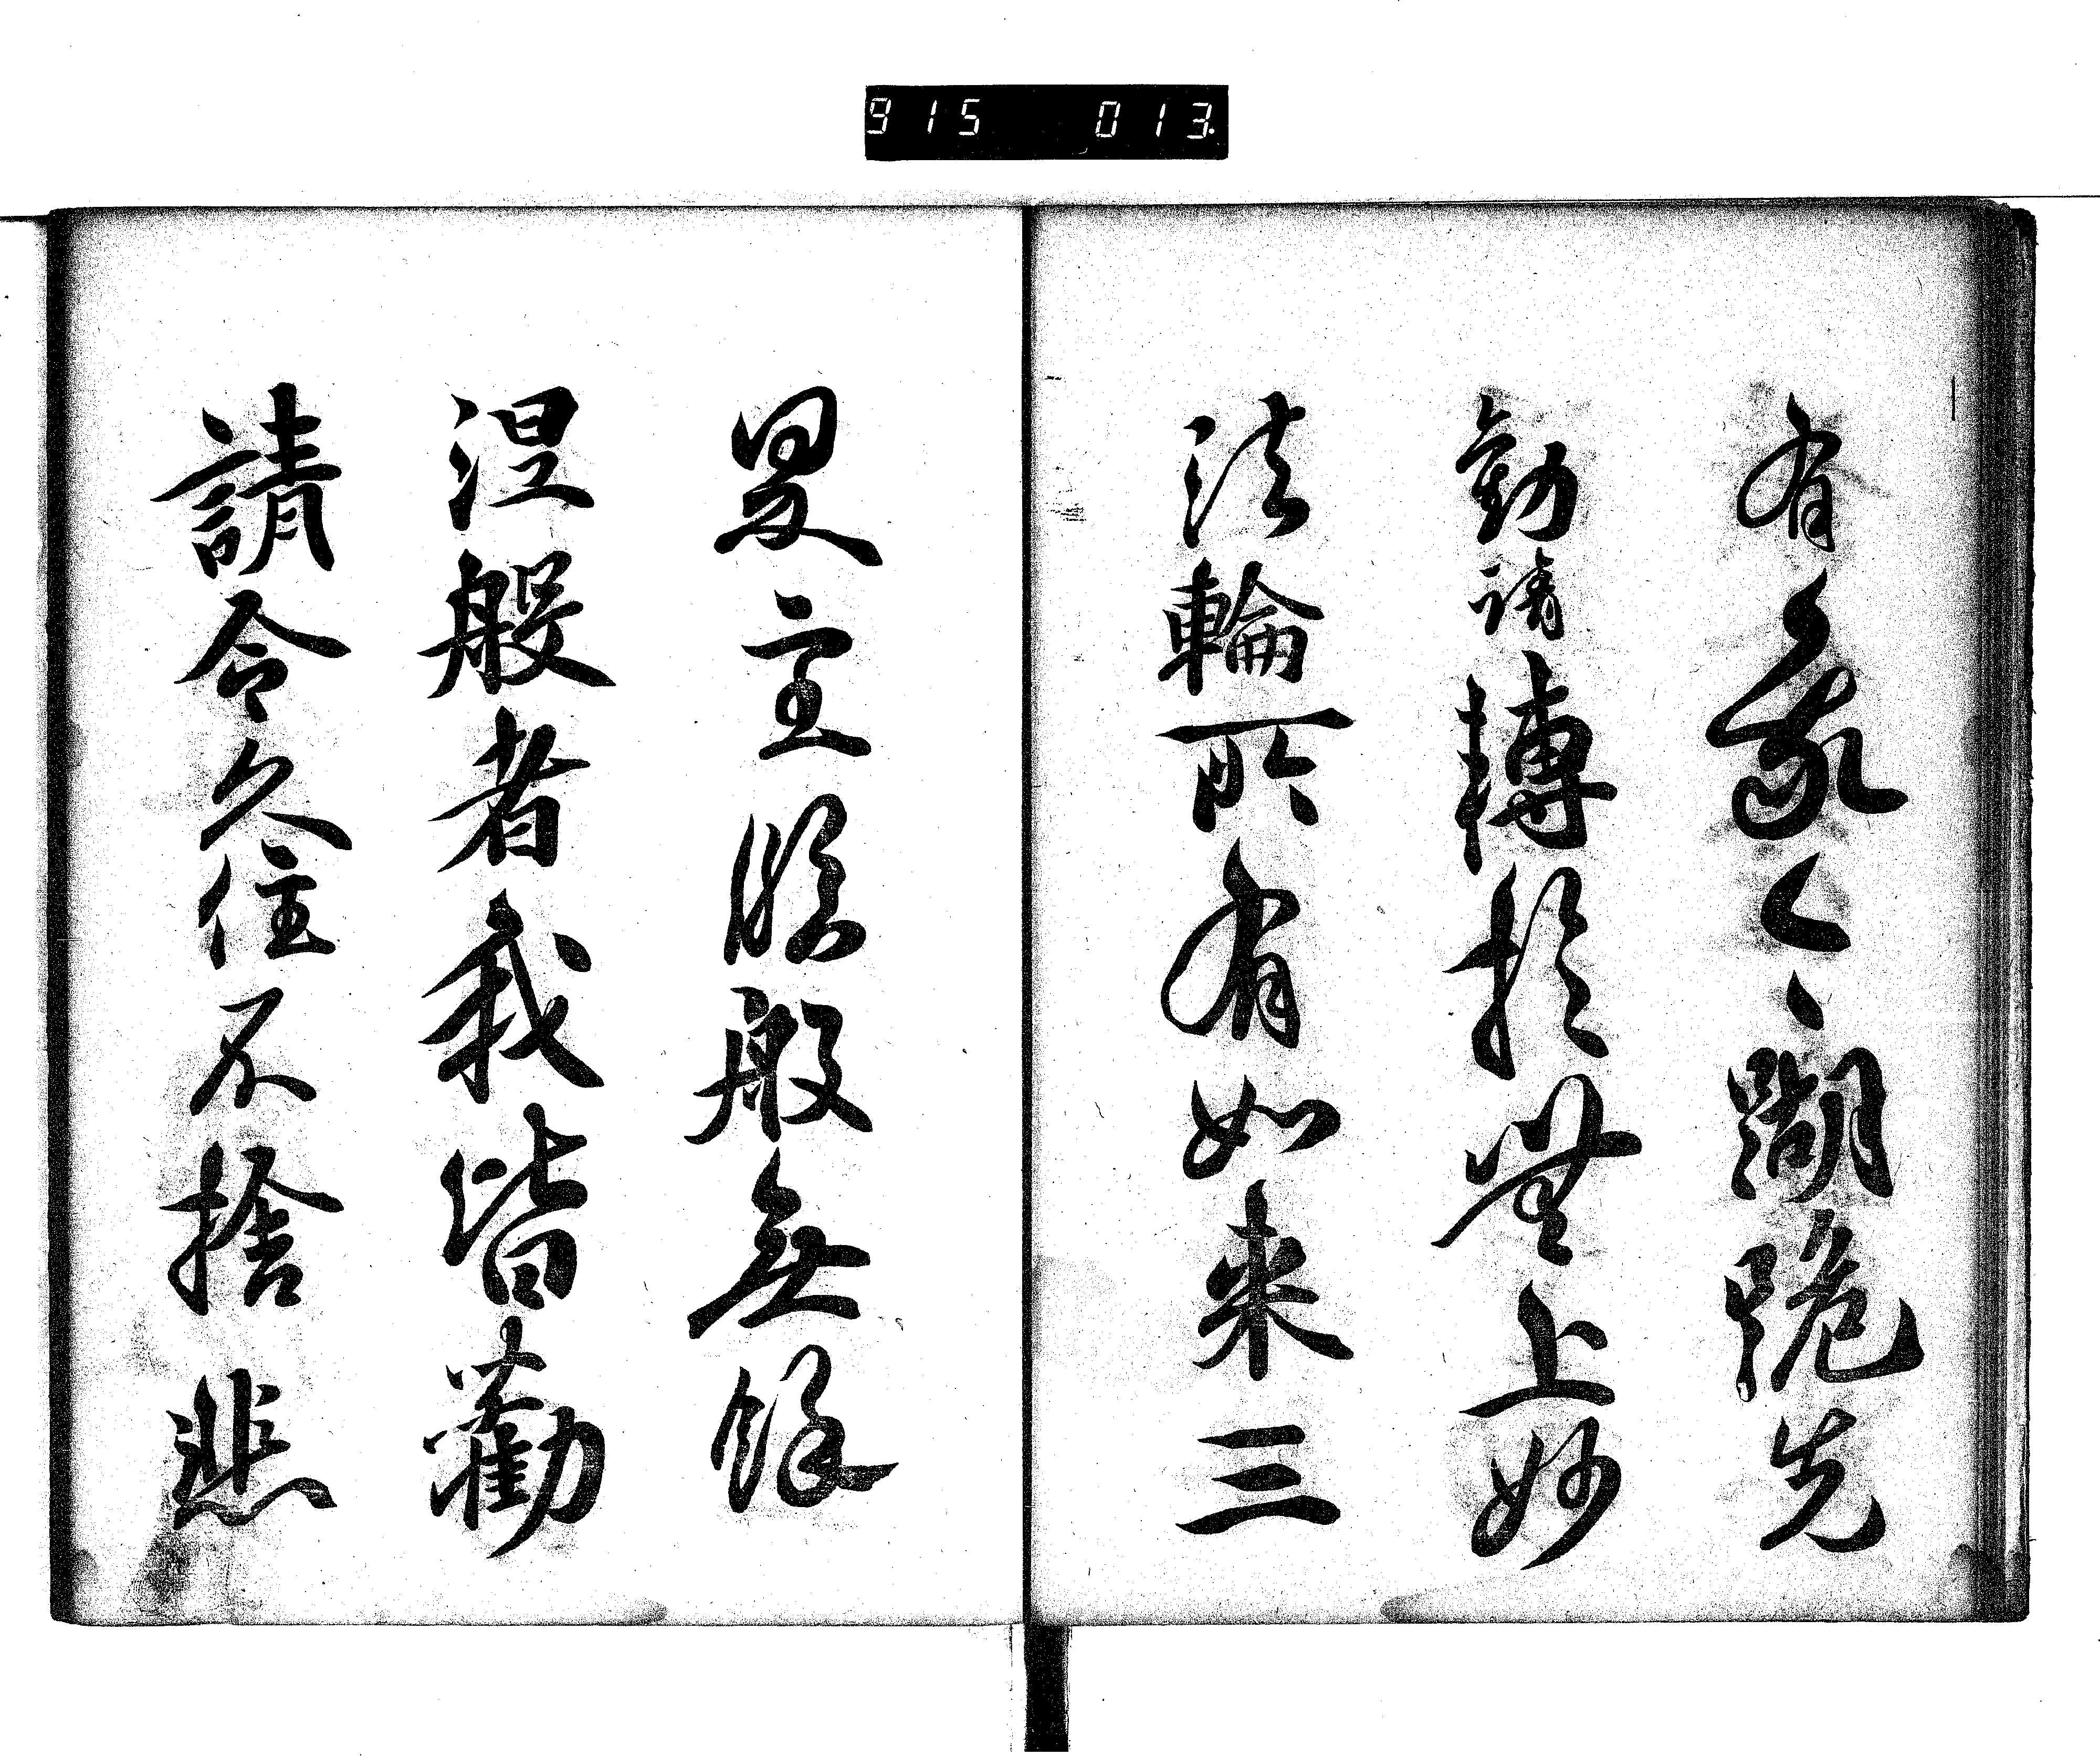 915 013
有我々胡跪先
勧請轉於無上妙
法輪所有如来三
界主臨般無餘
涅般者我皆勸
請令久住不捨悲